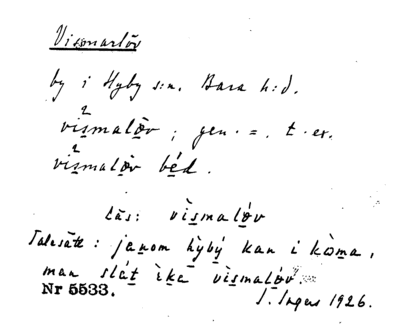 Vismarlöv
by i Hyby s:n. Bara h:d.
vìs̱malö̱̀v ; gen. = . t. ex.
vìs̱malö̱̀v bé̱d.
Läs: vìs̱malǿ̱v
Talesätt: ja̱nom hỳbý̱ kan i kò̱ma,
man slá̱t ìka̱ vìs̱malǿ̱v.
Nr 5533. I. Ingers 1926.